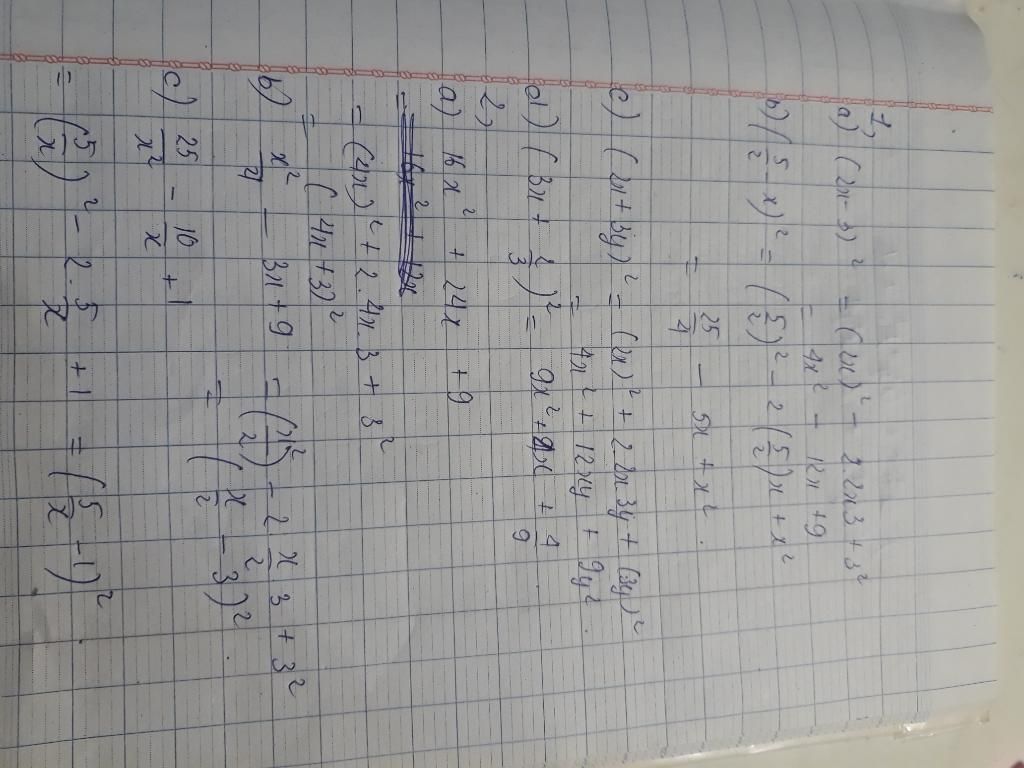 1,
a) (2x-3)² = (2x)² - 2.2x3 + 3²
= 4x² - 12x + 9
b) (5/2 - x)² = (5/2)² - 2(5/2)x + x²
= 25/4 - 5x + x².
c) (2x+3y)² = (2x)² + 2.2x3y + (3y)²
= 4x² + 12xy + 9y².
d) (3x + 2/3)² = 9x² + 4x + 4/9
2,
a) 16x² + 24x + 9
= (4x)² + 2.4x.3 + 3²
= (4x+3)²
b) x²/4 - 3x + 9 = (x/2)² - 2 x/2 3 + 3²
= (x/2 - 3)².
c) 25/x² - 10/x + 1
= (5/x)² - 2.5/x + 1 = (5/x - 1)².